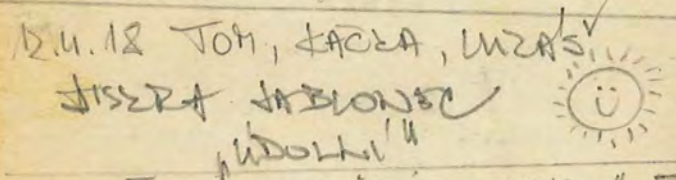 12.4.18 TOM, KAČKA, LUKÁŠ
JISERA JABLONEC
„ÚDOLNÍ"